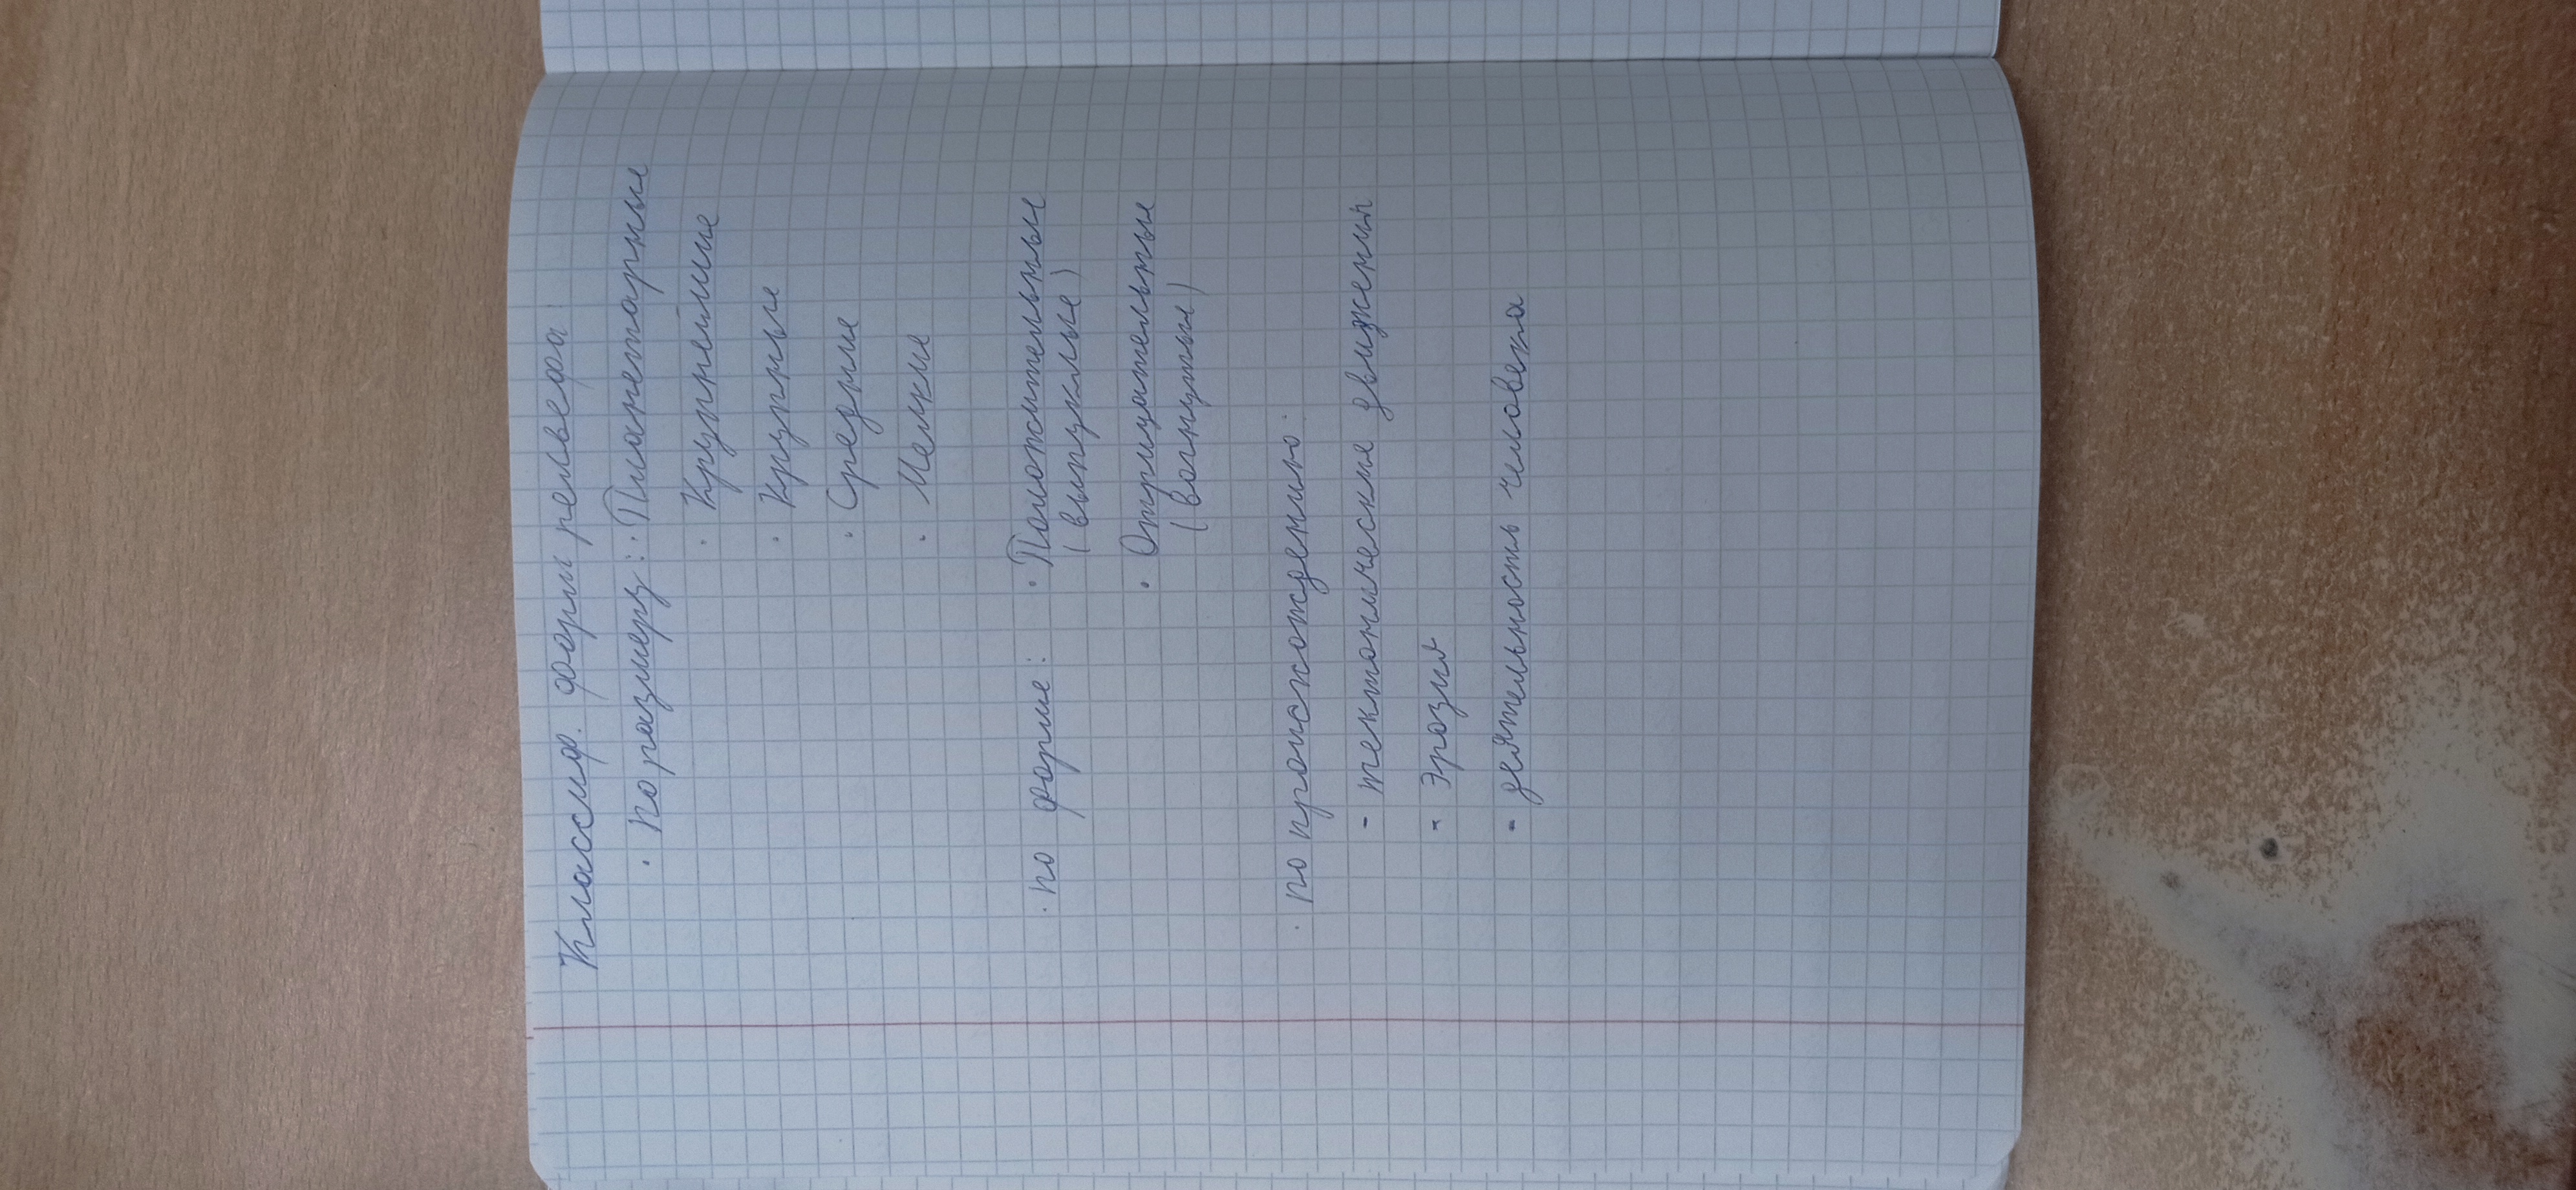 Классиф. форм рельефа:
· по размеру: · Планетарные
· Крупнейшие
· Крупные
· Средние
· Мелкие
· по форме: · Положительные
(выпуклые)
· Отрицательные
(вогнутые)
· по происхождению:
- тектонические движения
- эрозия
- деятельность человека